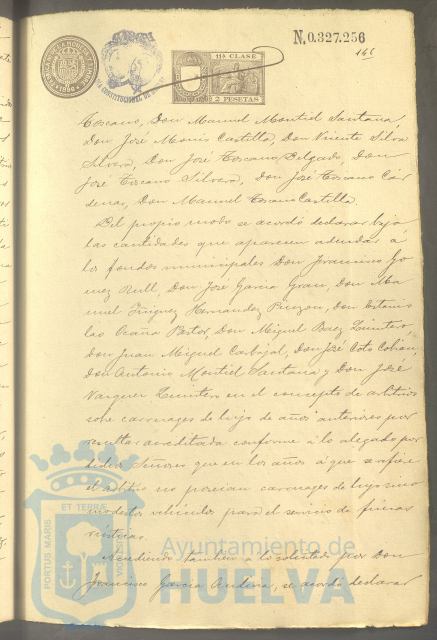 N.0.327.256
11ª CLASE
2 PESETAS
Toscano, Don Manuel Montiel Santana,
Don José Monis Castilla, Don Vicente Silva
Silvera, Don José Toscano Delgado, Don
José Toscano Silvera, Don José Toscano Cár
denas, Don Manuel Toscano Castilla.
Del propio modo se acordó declarar baja
las cantidades que aparecen adeudar á
los fondos municipales Don Francisco Go
mez Rull, Don José García Gran, Don Ma
nuel Iñiguez Hernandez Pinzon, Don Estanis
lao Ocaña Pastor, Don Miguel Baez Quintero,
Don Juan Miguel Carbajal, Don José Coto Cobian,
Don Antonio Montiel Santana y Don José
Vazquez Quintero en el concepto de arbitrio
sobre carruages de lujo de años anteriores por
resultar acreditada conforme á lo alegado por
dichos Señores que en los años á que se refiere
el arbitrio no poseian carruages de lujo sino
modestos vehículos para el servicio de fincas
rústicas.
Accediendo tambien á lo solicitado por Don
Francisco García, se acordó declarar
PORTUS MARIS
ET TERRÆ
Ayuntamiento de
HUELVA